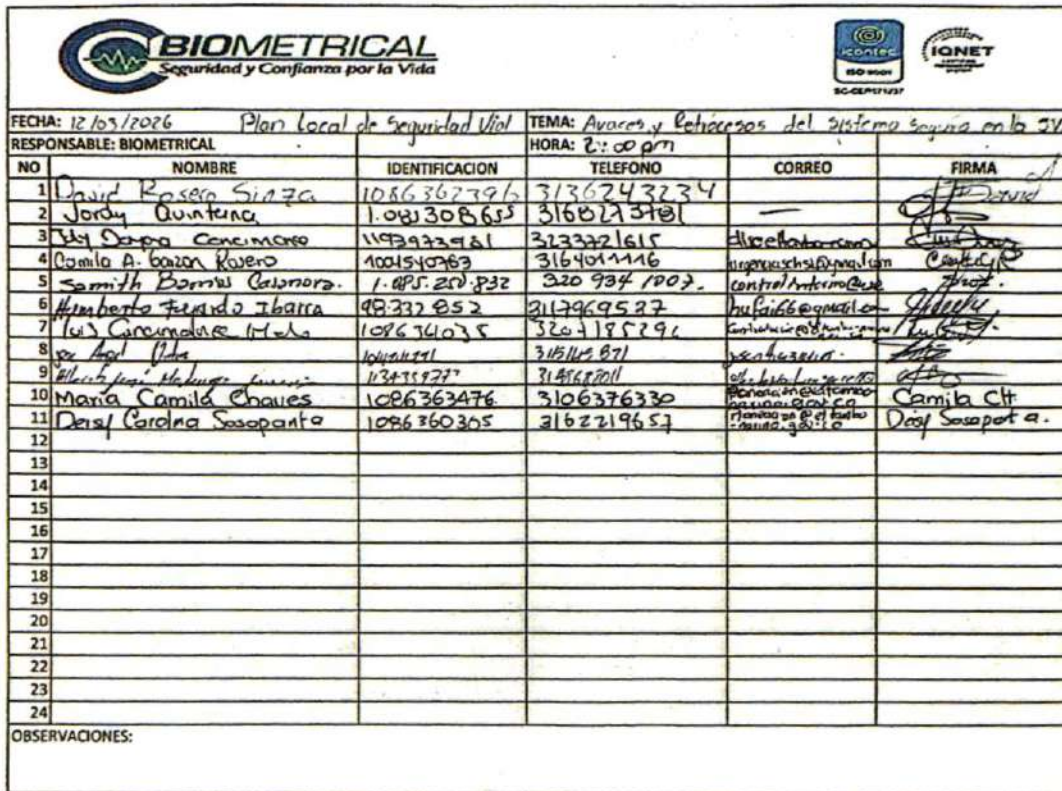 BIOMETRICAL
Seguridad y Confianza por la Vida
icontec
ISO 9001
SC-CER171737
IQNET
FECHA: 12/03/2026 Plan Local de Seguridad Vial TEMA: Avaces y Retrocesos del sistema seguro en la SV
RESPONSABLE: BIOMETRICAL HORA: 2:00 pm
NO NOMBRE IDENTIFICACION TELEFONO CORREO FIRMA
1 David Rosero Sinza 1086362396 3136243234 David
2 Jordy Quintena 1.081308655 3168273781 —
3 1193973981 3233721615
4 Camila A. Garzon Rosero 1004540763 3164011116
5 Samith Barrios Casanova. 1.085.250.832 320 934 1007.
6 Humberto Fernando Ibarra 98.332.852 3117969527 hufai66@gmail.co
7 Luis 1086341035 3207185296
8
9
10 María Camila Chaves 1086363476 3106376330 Camila CH.
11 Deisy Carolina Sosapanta 1086360305 3162219657 Deisy Sosapanta.
12
13
14
15
16
17
18
19
20
21
22
23
24
OBSERVACIONES: